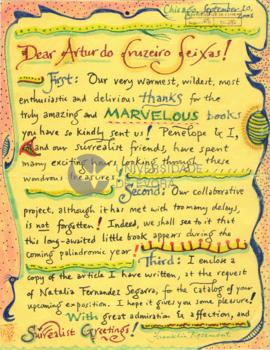 Chicago, September 10,
2001
Dear Artur do Cruzeiro Seixas!
First: Our very warmest, wildest, most
enthusiastic and delirious thanks for the
truly amazing and MARVELOUS books
you have so kindly sent us! Penelope & I,
and our surrealist friends, have spent
many exciting hours looking through these
wondrous treasures!
UNIVERSIDADE
DE ÉVORA
Second: Our collaborative
project, although it has met with too many delays,
is not forgotten! Indeed, we shall see to it that
this long-awaited little book appears during the
coming palindromic year!
Third: I enclose a
copy of the article I have written, at the request
of Natalia Fernandez Segarra, for the catalog of your
upcoming exposition. I hope it gives you some pleasure!
With great admiration & affection, and
Surrealist Greetings!
Franklin Rosemont